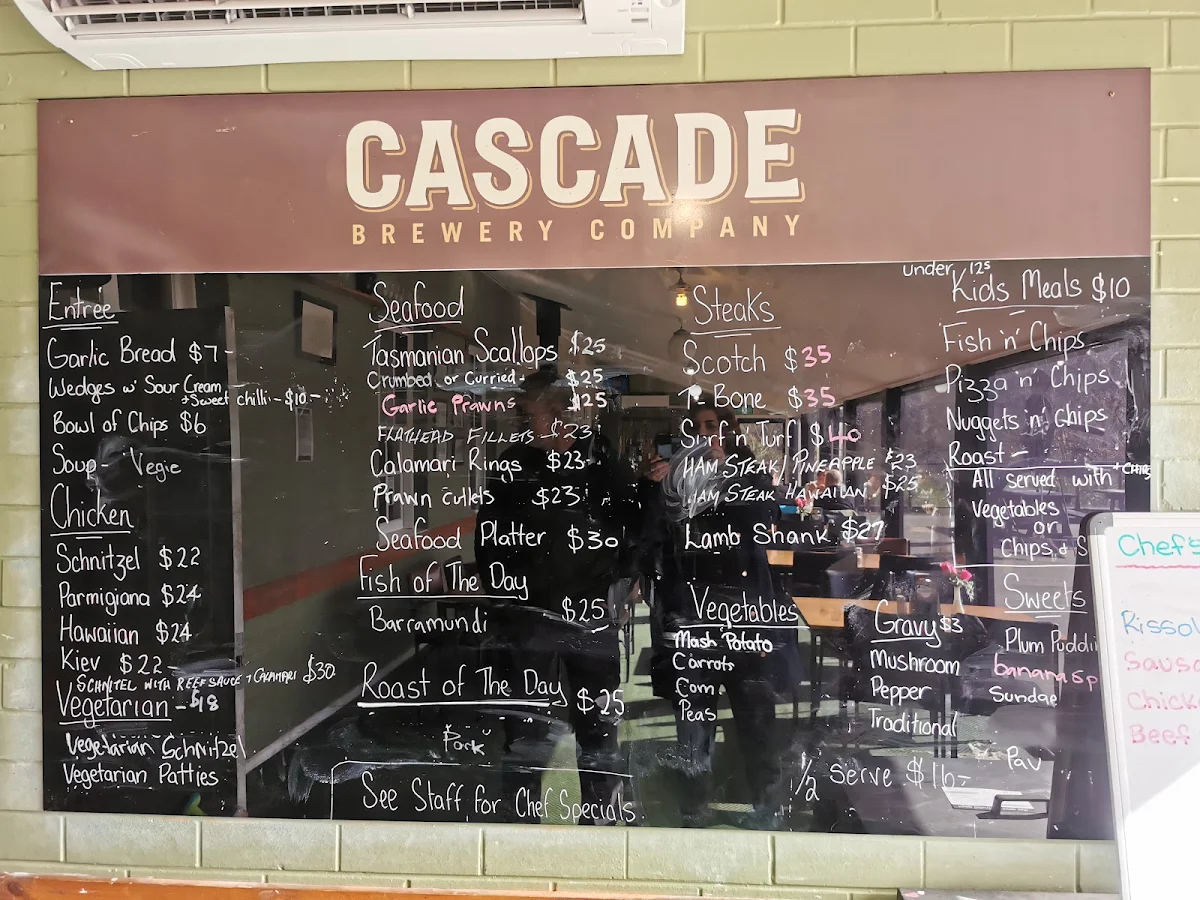 CASCADE
BREWERY COMPANY
Entrée
Garlic Bread $7-
Wedges w' Sour Cream
+Sweet chilli - $10 -
Bowl of Chips $6
Soup - Vegie
Chicken
Schnitzel $22
Parmigiana $24
Hawaiian $24
Kiev $22-
SCHNITEL WITH REEF SAUCE + CALAMARI $30
Vegetarian - $18
Vegetarian Schnitzel
Vegetarian Patties
Seafood
Tasmanian Scallops $25
Crumbed or Curried - $25
Garlic Prawns $25
FLATHEAD FILLETS - $23
Calamari Rings $23-
Prawn cutlets $23
Seafood Platter $30
Fish of The Day
Barramundi $25
Roast of The Day $25
Pork
See Staff for Chef Specials
Steaks
Scotch $35
T-Bone $35
Surf 'n' Turf $40
HAM STEAK / PINEAPPLE $23
HAM STEAK HAWAIIAN $25
Lamb Shank $27
Vegetables
Mash Potato
Carrots
Corn
Peas
Gravy $3
Mushroom
Pepper
Traditional
1/2 serve $16-
under 12s
Kids Meals $10
Fish 'n' Chips
Pizza 'n' Chips
Nuggets 'n' Chips
Roast -
All served with + CHIPS
vegetables
or
Chips & S
Sweets
Plum Puddi
banana sp
Sundae
Pav
Chef's
Rissol
Sausa
Chick
Beef